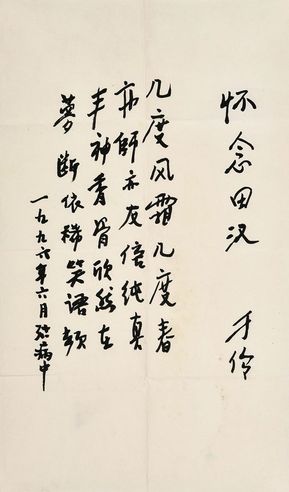 怀念田汉
于伶
几度风霜几度春
亦師亦友倍纯真
丰神秀骨欣然在
梦断依稀笑语频
一九九六年六月 病中